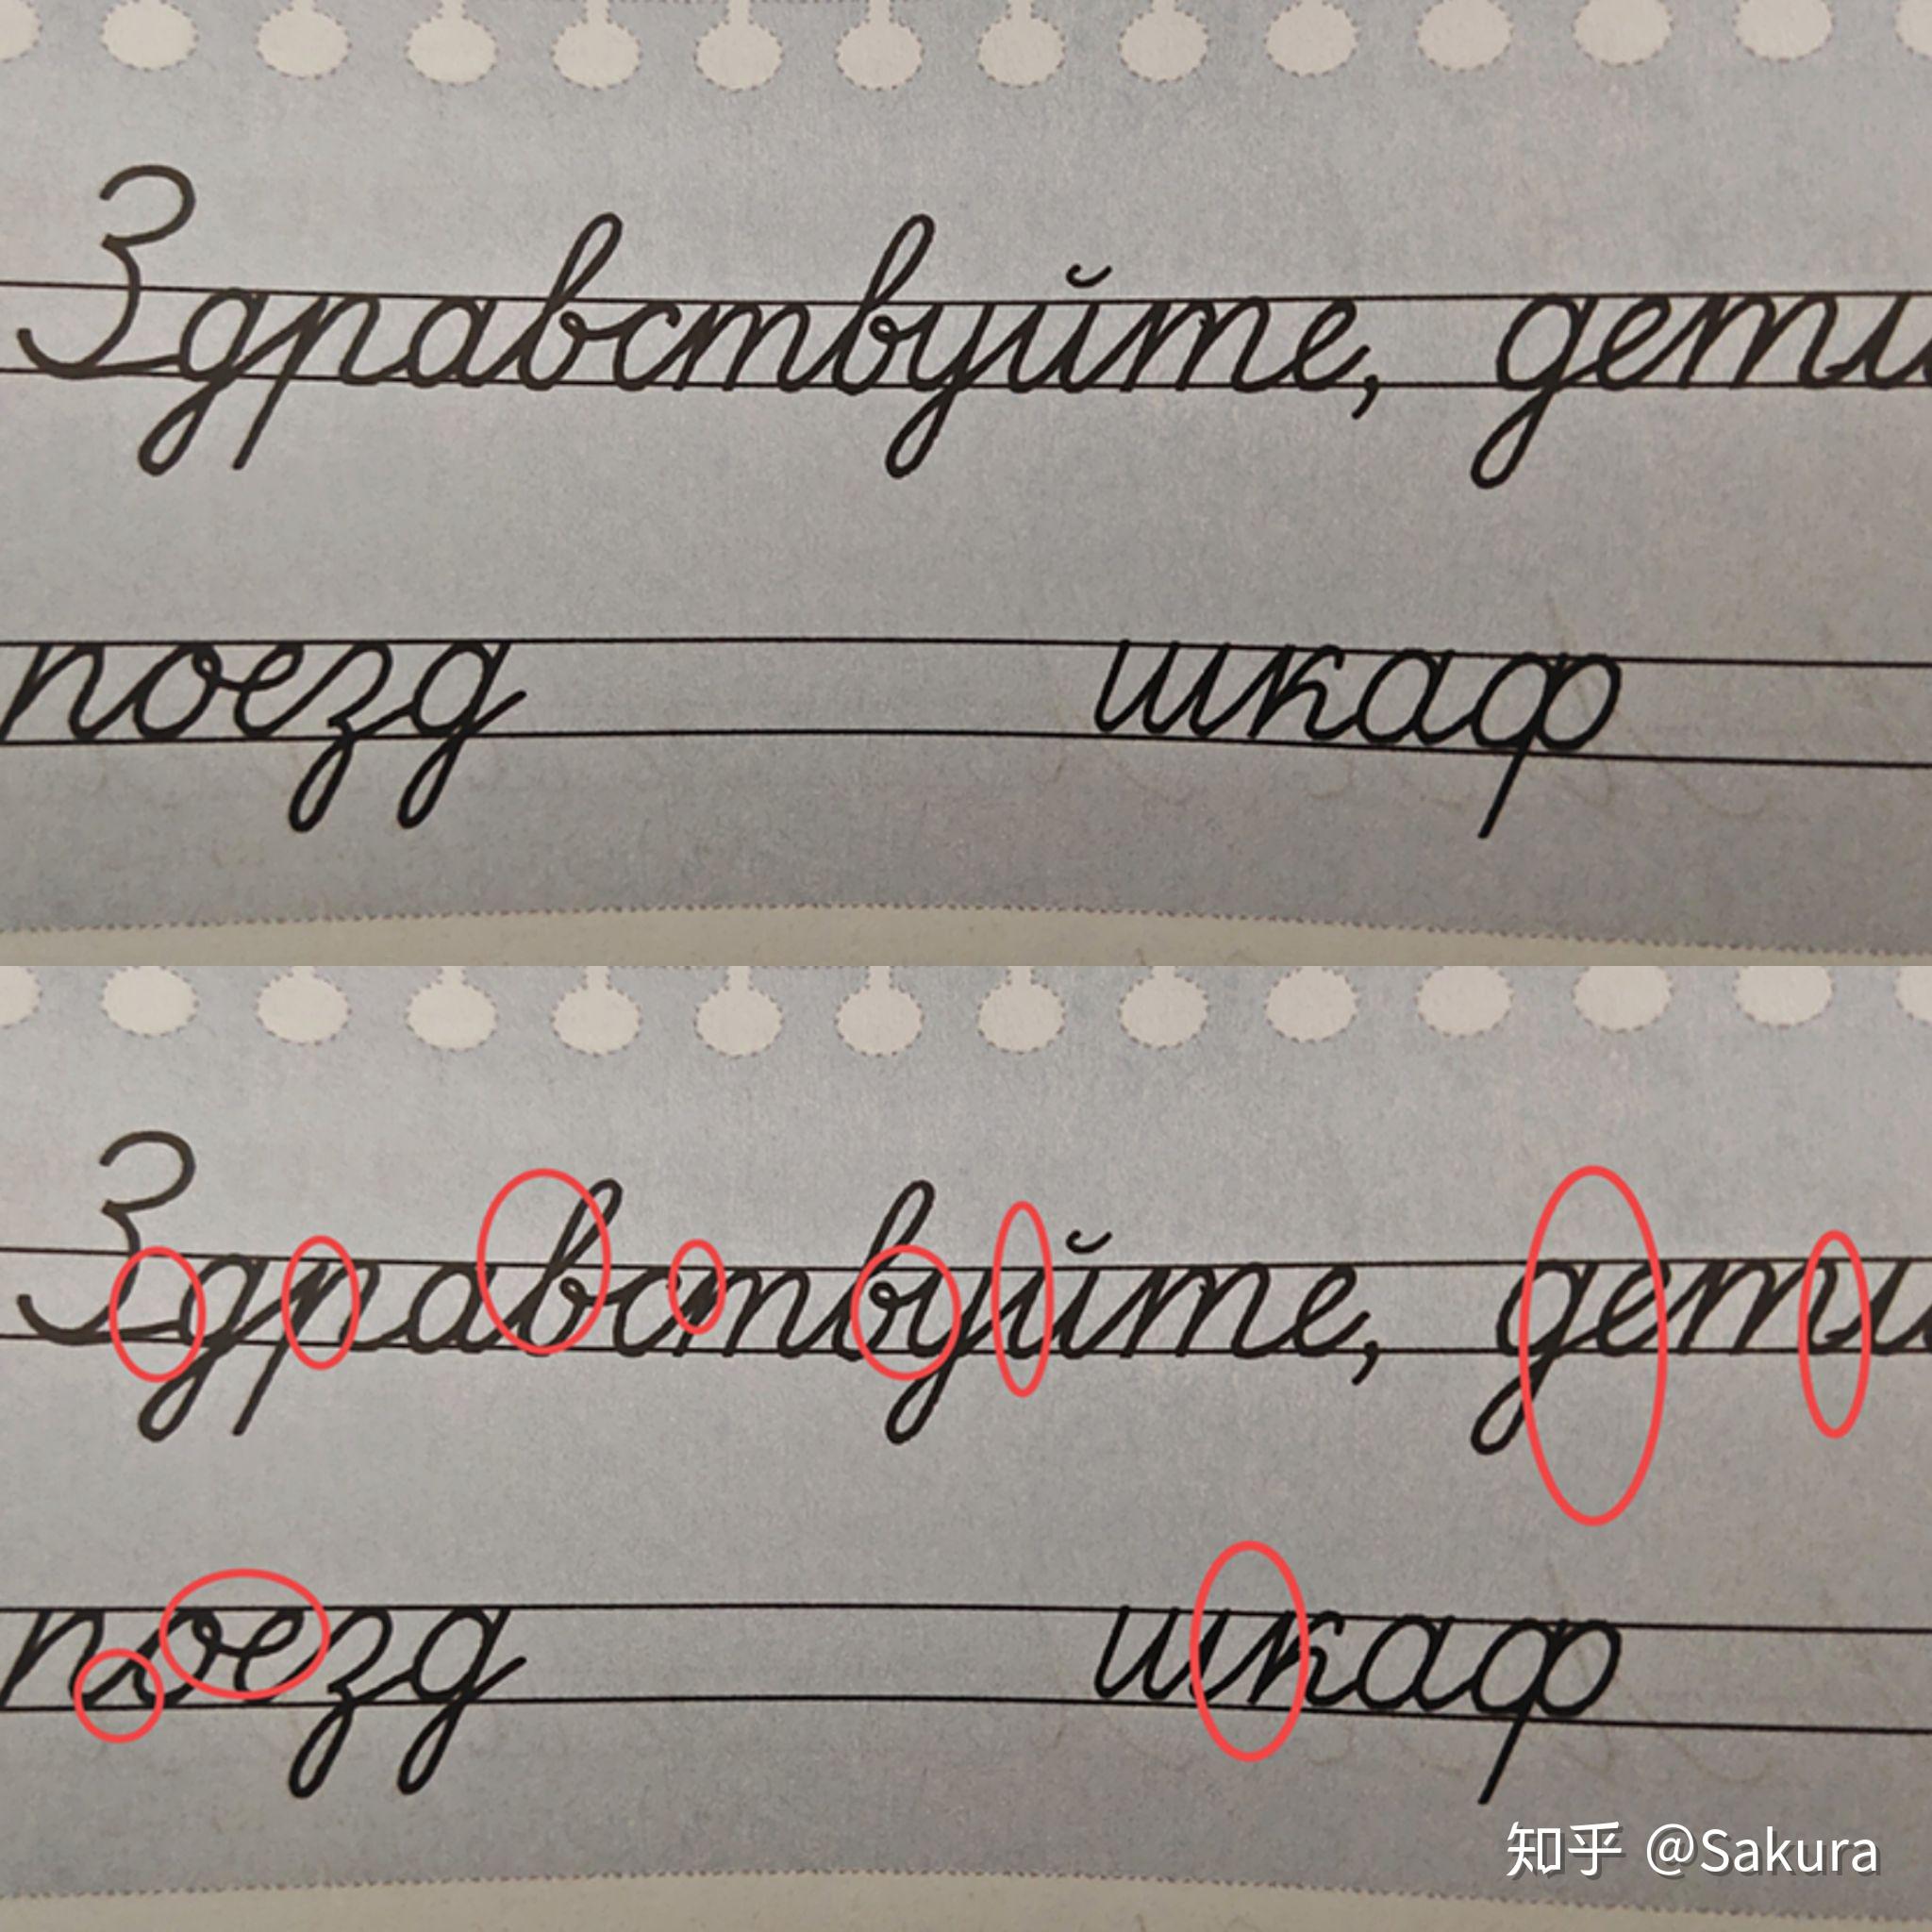 Здравствуйте, дети
поезд шкаф
Здравствуйте, дети
поезд шкаф
知乎 @Sakura